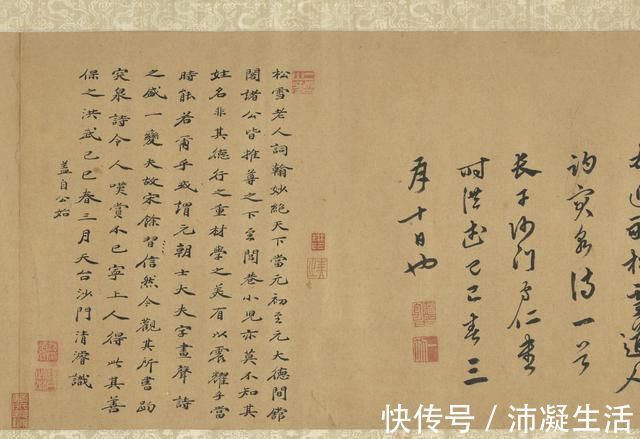 松雪道人
趵突泉詩一首
長干沙门守仁書
时洪武己巳春三
月十日也
松雪老人詞翰妙絕天下當元初至元大德間館
閣諸公皆推尊之下至閭巷小児亦莫不知其
姓名非其德行之重材學之美有以震耀乎當
時能若爾乎或謂元朝士大夫字畫聲詩
之盛一變夫故宋餘習信然今觀其所書趵
突泉詩令人嘆賞不已寧上人得此其善
保之洪武己巳春三月天台沙門清濬識
蓋自公始
快传号 / 沛凝生活